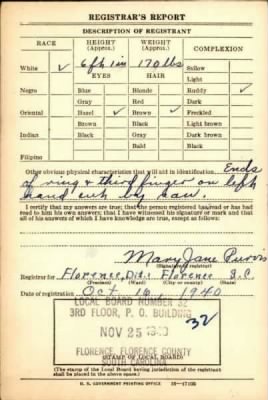 REGISTRAR'S REPORT
DESCRIPTION OF REGISTRANT
RACE HEIGHT (Approx.) WEIGHT (Approx.) COMPLEXION
White ✓ 6 ft 1 in 170 lbs Sallow
EYES HAIR Light
Negro Blue Blonde Ruddy ✓
Gray Red Dark
Oriental Hazel ✓ Brown ✓ Freckled
Brown Black Light brown
Indian Black Gray Dark brown
Bald Black
Filipino
Other obvious physical characteristics that will aid in identification Ends
of ring & third finger on left
hand cut by saw.
I certify that my answers are true; that the person registered has read or has had
read to him his own answers; that I have witnessed his signature or mark and that
all of his answers of which I have knowledge are true, except as follows:
Mary Jane Purvis
(Signature of registrar)
Registrar for Florence, Florence S.C.
(City or county) (State)
Date of registration Oct 16, 1940
LOCAL BOARD NUMBER 32
3RD FLOOR, P. O. BUILDING
NOV 25 1940
32
FLORENCE FLORENCE COUNTY
SOUTH CAROLINA
(STAMP OF LOCAL BOARD)
(The stamp of the Local Board having jurisdiction of the registrant
shall be placed in the above space.)
U. S. GOVERNMENT PRINTING OFFICE 16—17105